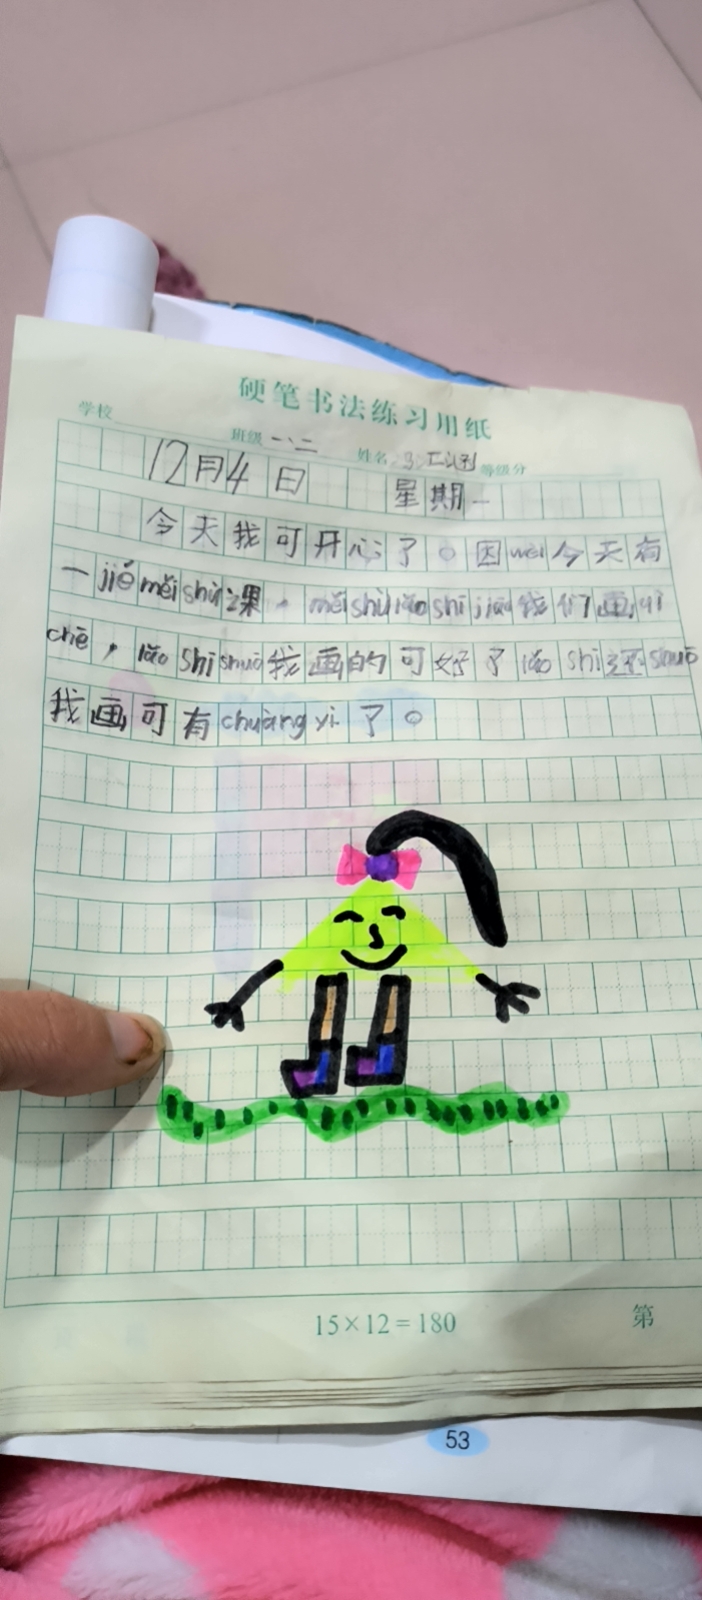 硬笔书法练习用纸
学校 班级 一、二 姓名 等级分
12月4日 星期一
今天我可开心了。因wei今天有
一jié měi shù课，měi shù lǎo shī jiāo我们画qì
chē，lǎo shī shuō我画的可好了lǎo shī还shuō
我画可有chuàng yì了。
15×12=180 第
53